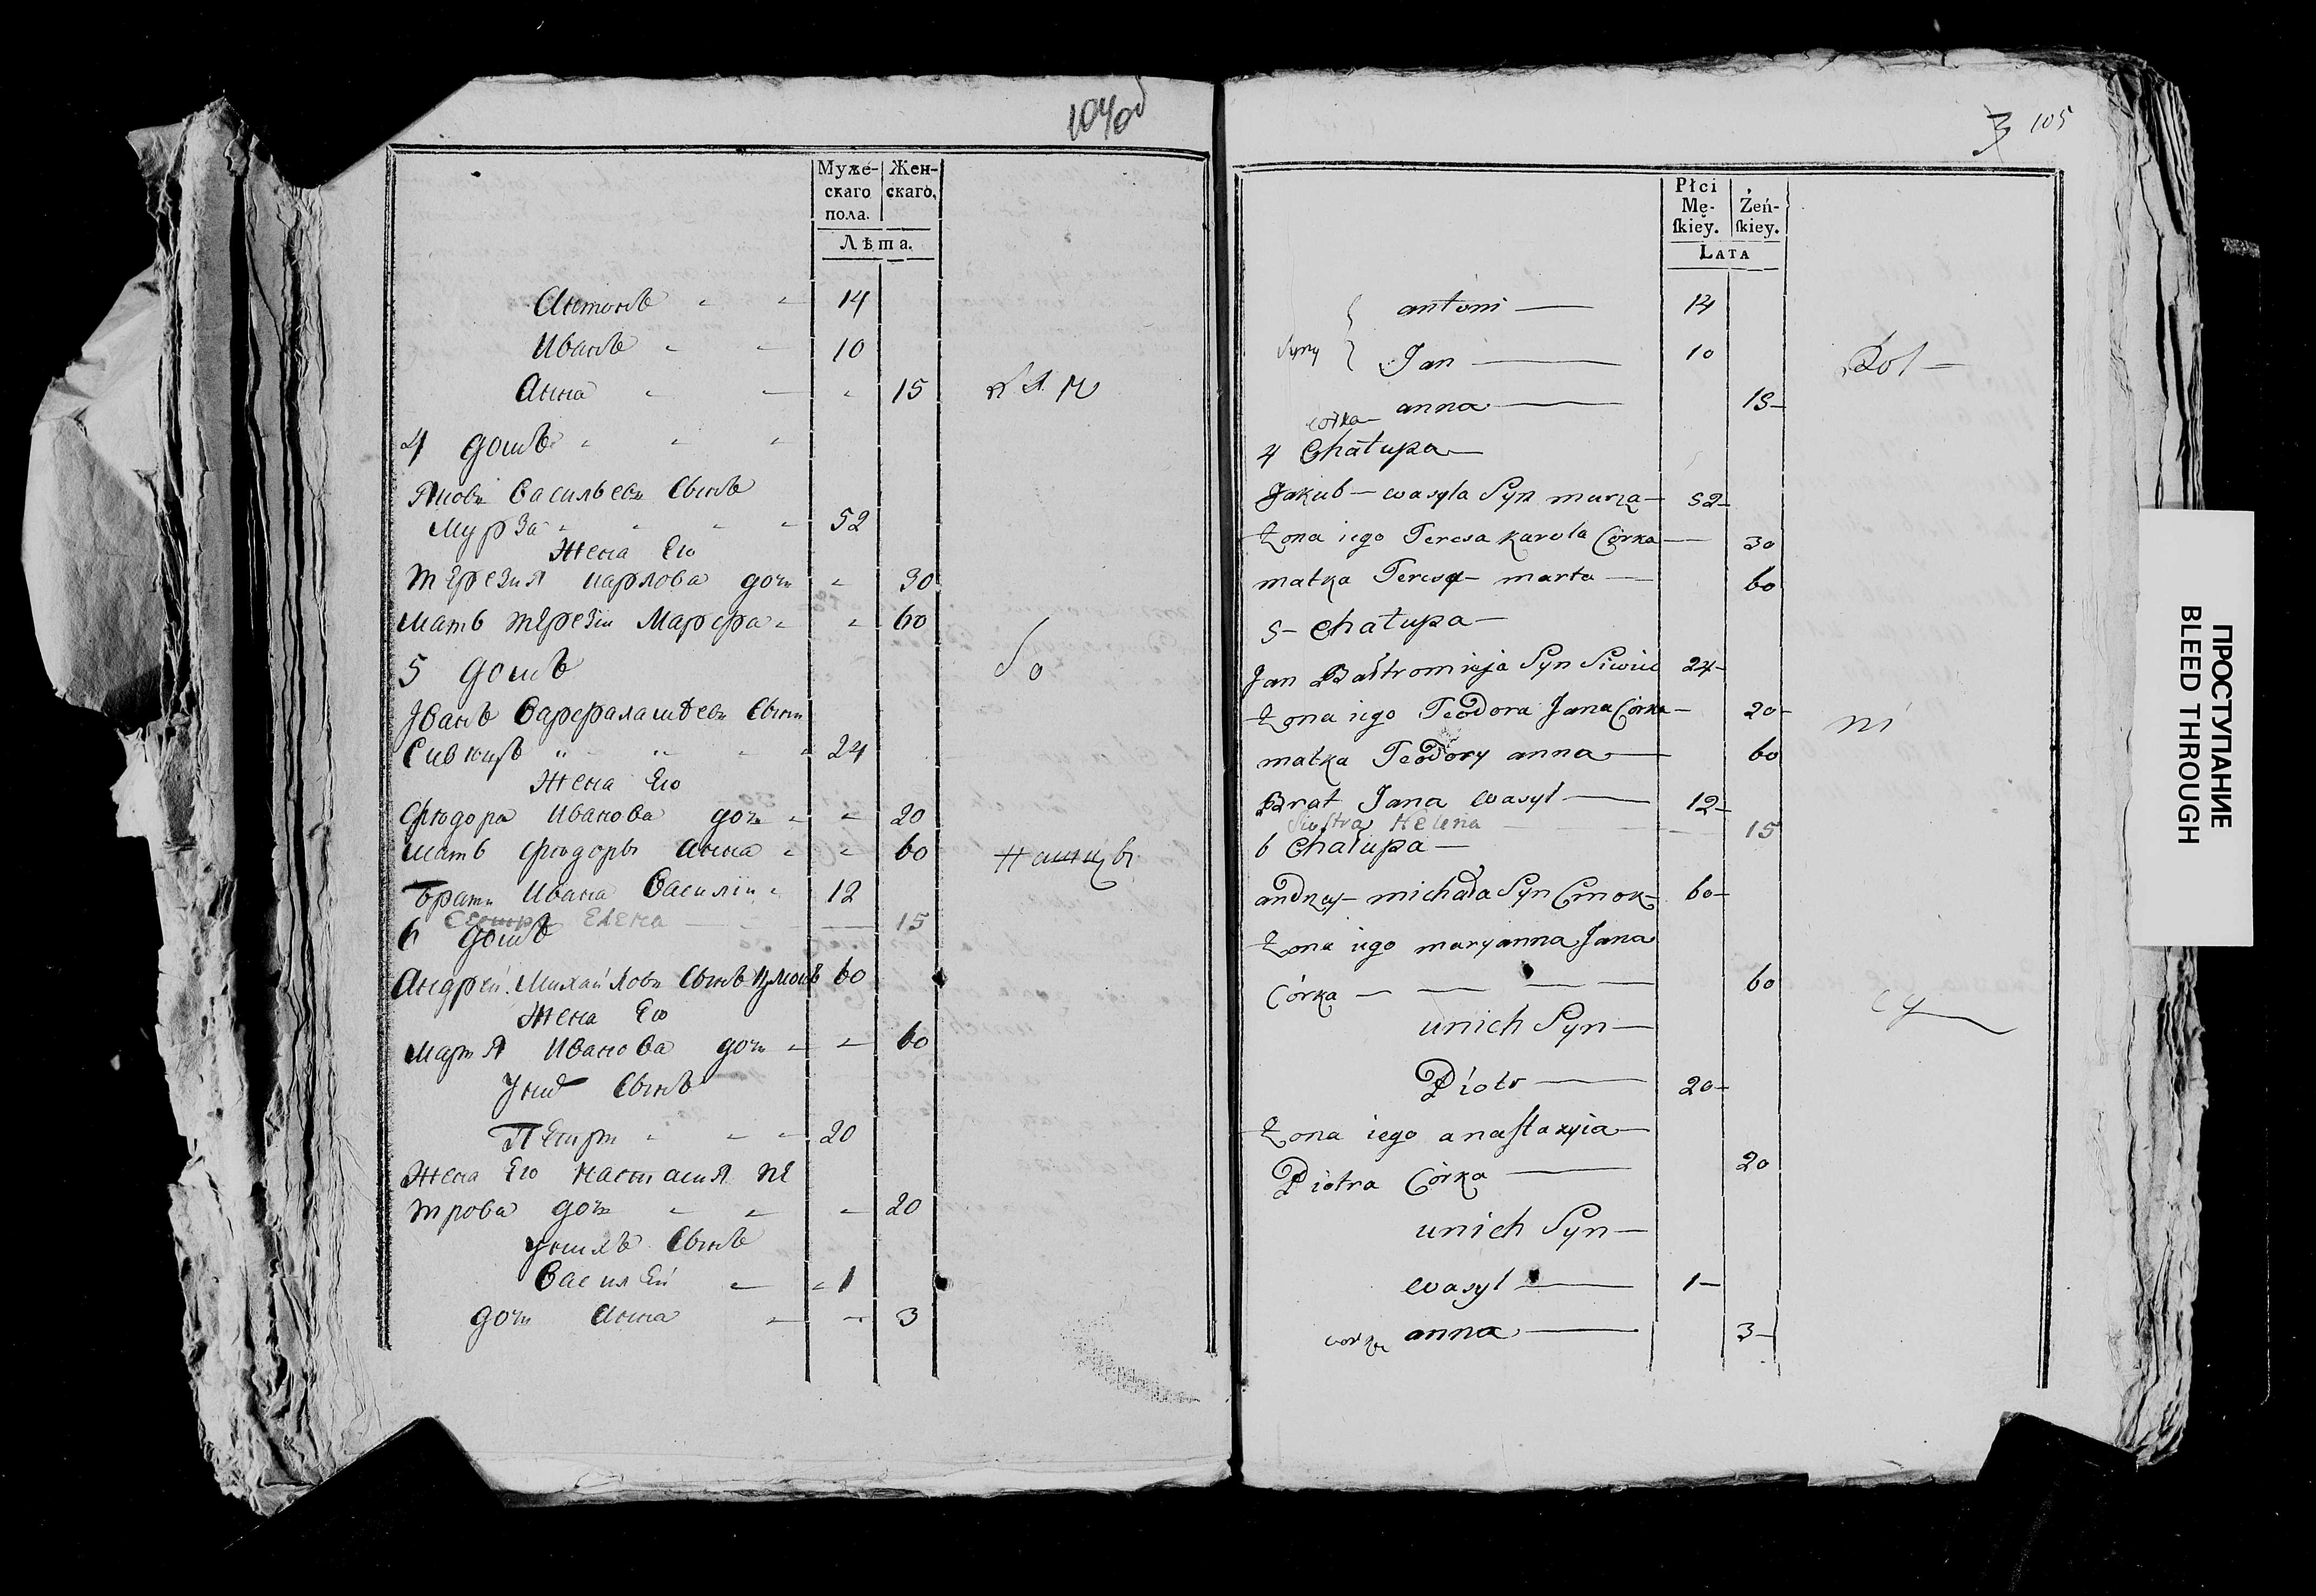 104об
Муже- Жен-
скаго скаго.
пола.
Лѣта.
Антонъ 14
Иванъ 10
Анна 15
4 домъ
Яковъ Васильевъ сынъ
Мурза 52
Жена Его
Терезия карлова дочь 30
мать терезiи Марфа 60
5 домъ
Iванъ Варфаламѣевъ сынъ
Сивицъ 24
Жена Его
Фюдора Иванова дочь 20
мать Фюдоры Анна 60
Братъ Ивана Василiи 12
Сестра Елена 15
6 домъ
Андрей Михайловъ сынъ Цмокъ 60
Жена Ею
Маря Иванова дочь 60
Сынъ
Петръ 20
Жена Ею Настасия пе
трова дочь 20
Сынъ
Василей 1
дочь Анна 3
3 105
Płci
Mę- Żeń-
ſkiey. ſkiey.
Lata
antoni 14
Syny
Jan 10
Kol
anna 15
corka
4 Chałupa
Jakub wasyla Syn murza 52
żona iego Teresa karola Córka 30
matka Teresy marta 60
5 Chałupa
Jan Bałtromieja Syn Siwiec 24
żona iego Teodora Jana Córka 20
ni
matka Teodory anna 60
Brat Jana wasyl 12
Siostra Helena 15
6 Chałupa
andrzey michała Syn Cmok 60
żona iego maryanna Jana
Córka 60
cy
unich Syn
Piotr 20
żona iego anaſtazyia
Piotra Córka 20
unich Syn
wasyl 1
corka anna 3
ПРОСТУПАНИЕ
BLEED THROUGH